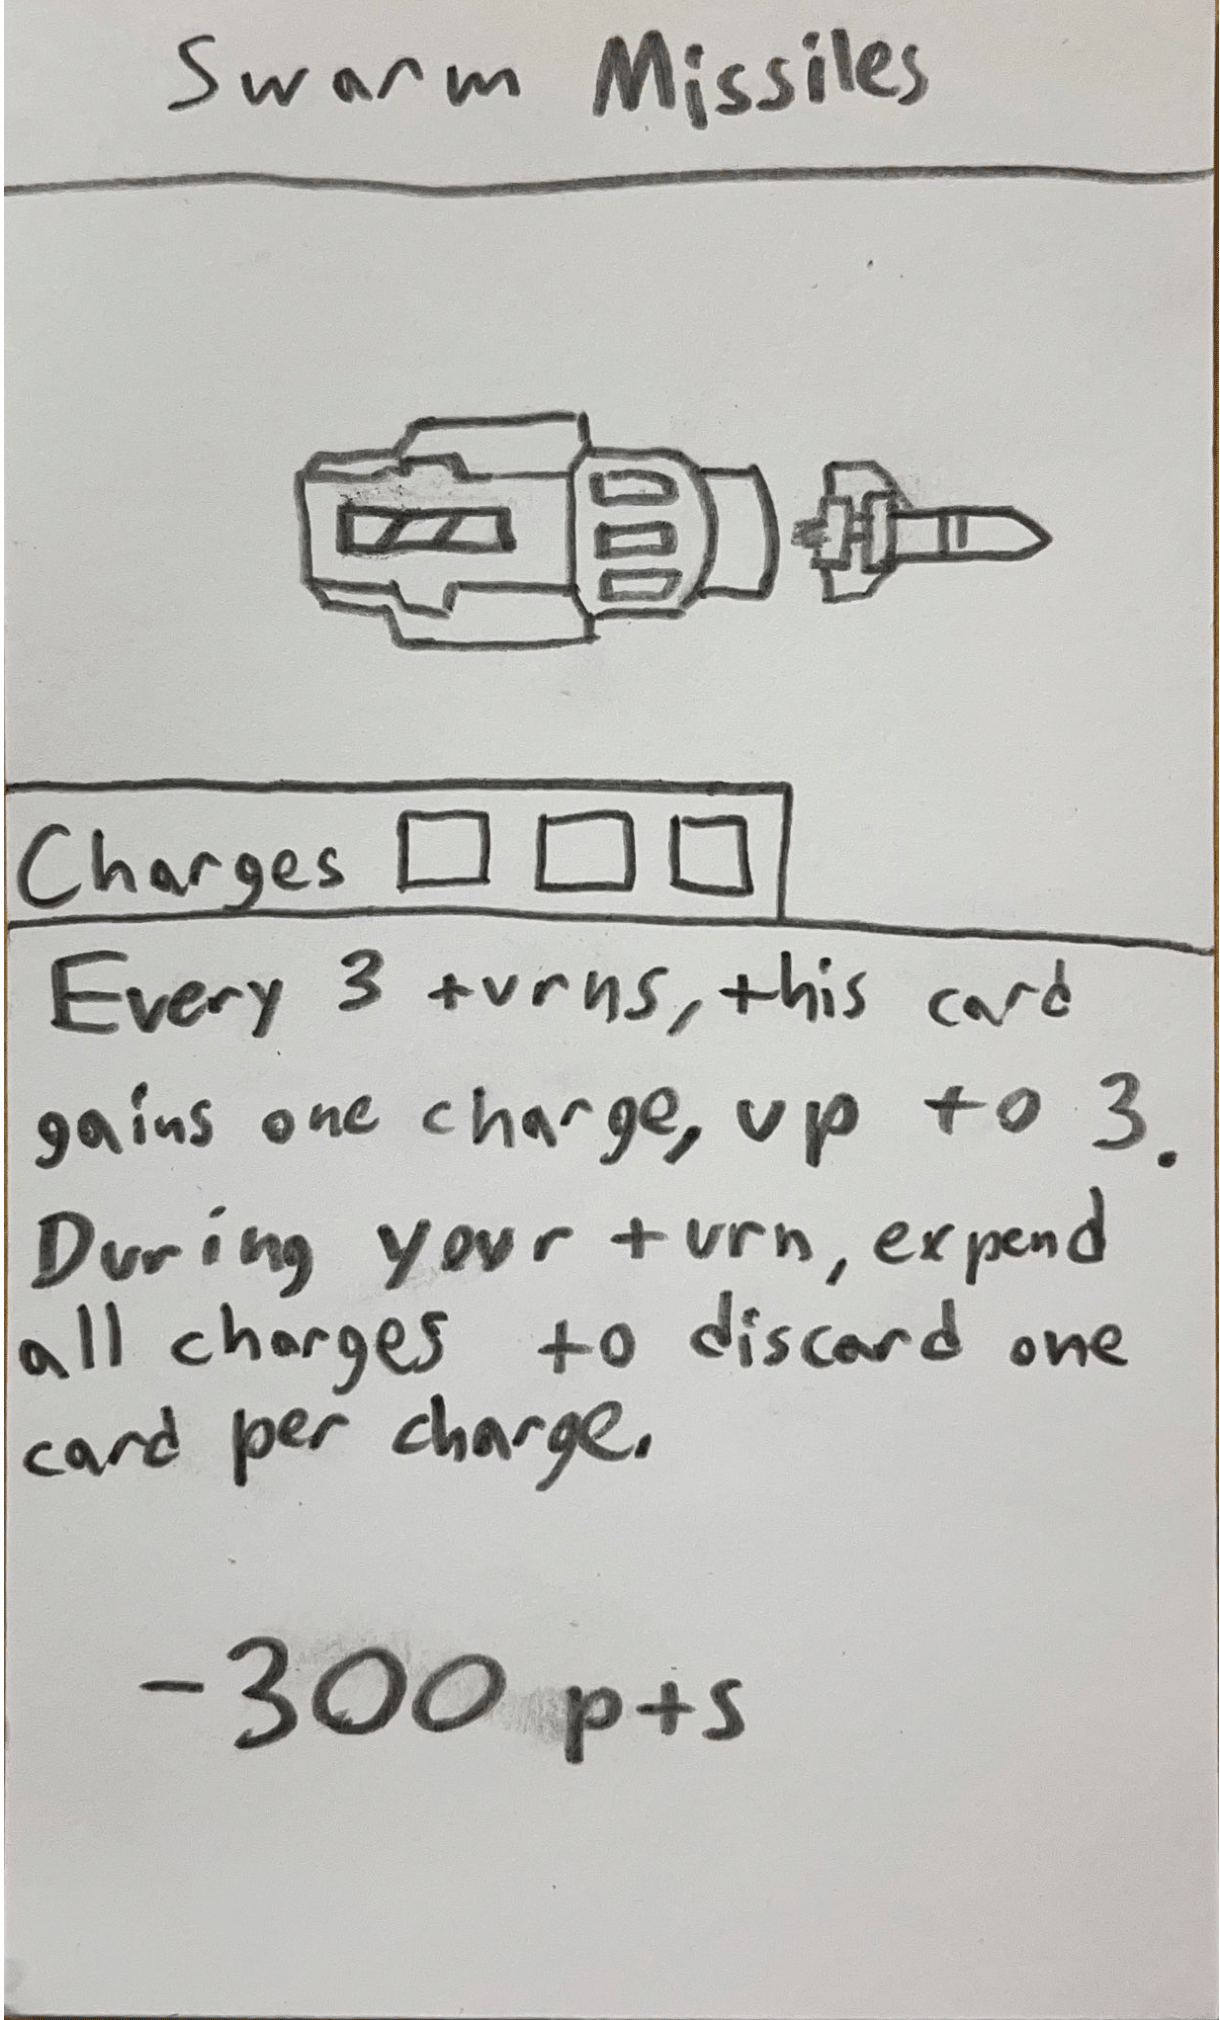 Swarm Missiles
Charges
Every 3 turns, this card
gains one charge, up to 3.
During your turn, expend
all charges to discard one
card per charge.
-300 pts